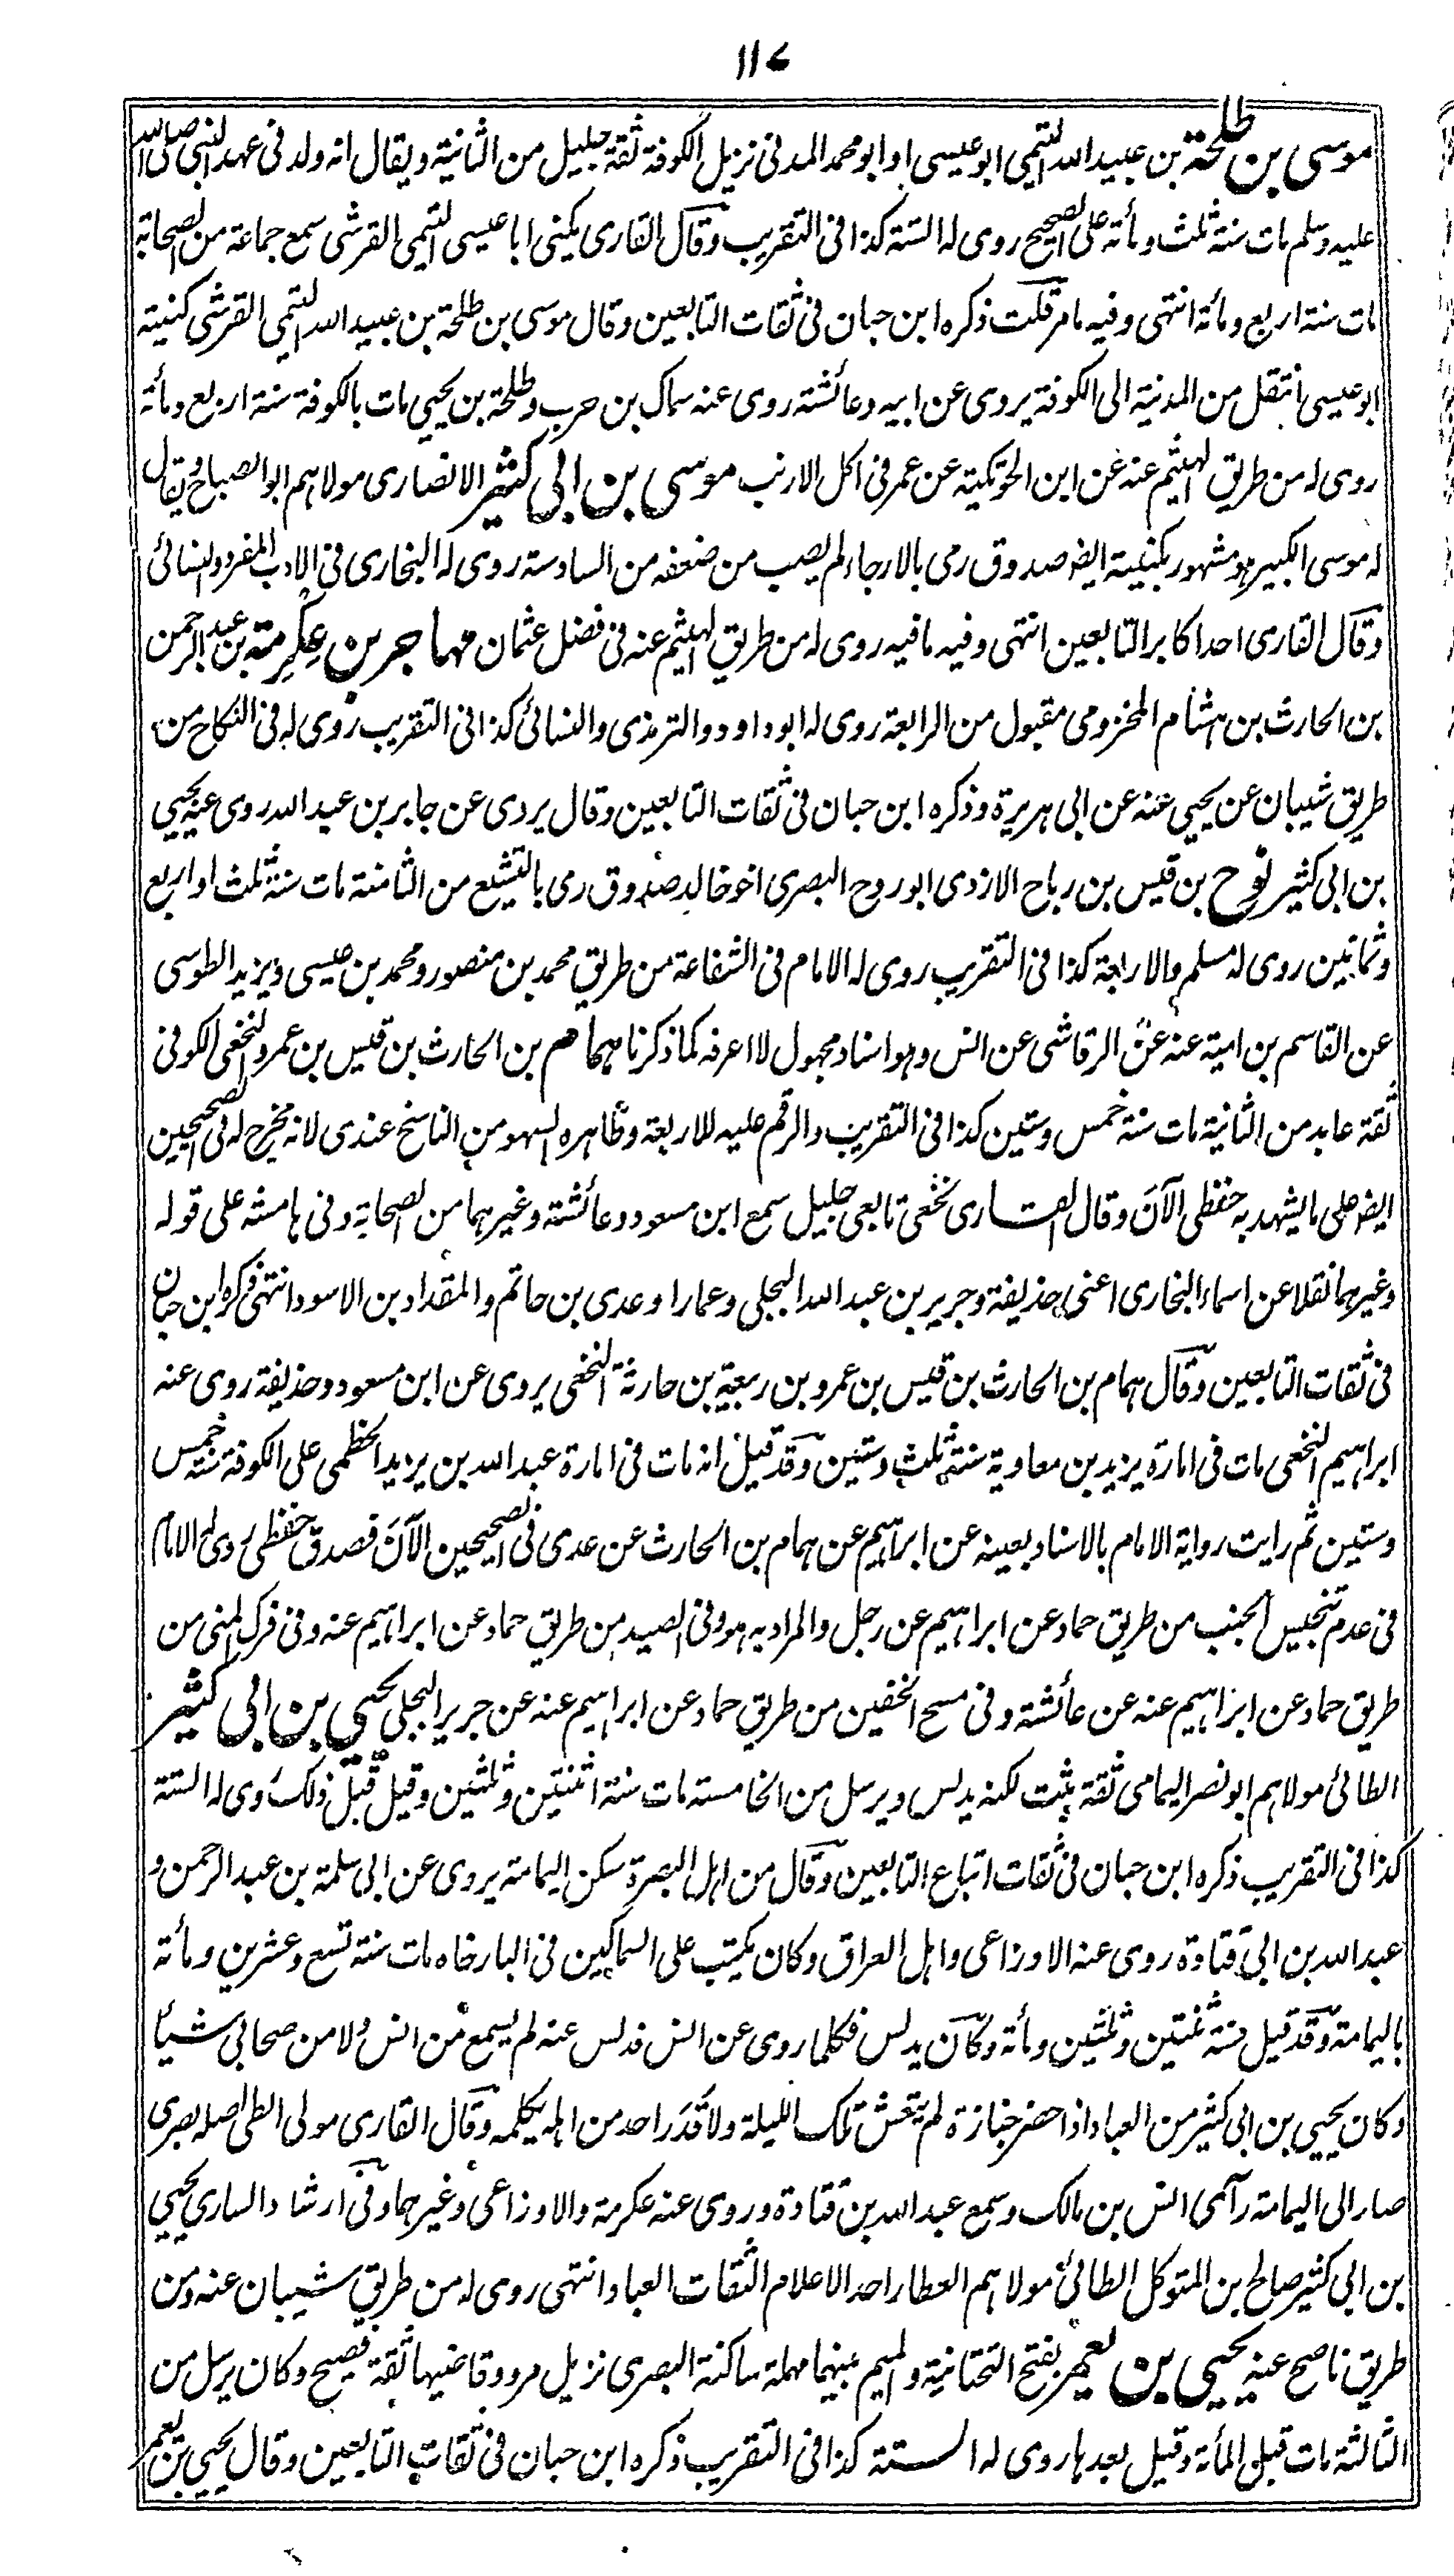 ۱۱۷
موسى بن طلحة بن عبيد الله التيمي ابو عيسى او ابو محمد المدني نزيل الكوفة ثقة جليل من الثانية ويقال انه ولد في عهد النبي صلى الله
عليه وسلم مات سنة ثلث ومأته على الصحيح روى له الستة كذا في التقريب وقال القارى يكنى ابا عيسى التيمي القرشى سمع جماعة من الصحابة
مات سنة اربع ومأة انتهى وفيه ما مر قلت ذكره ابن حبان في ثقات التابعين وقال موسى بن طلحة بن عبيد الله التيمي القرشى كنيته
ابو عيسى انتقل من المدينة الى الكوفة يروى عن ابيه وعائشة روى عنه سماك بن حرب وطلحة بن يحيى مات بالكوفة سنة اربع ومأة
روى له من طريق الهيثم عنه عن ابن الحوتكية عن عمر في اكل الارنب موسى بن ابى كثير الانصارى مولاهم ابو الصباح ويقال
له موسى الكبير وهو مشهور بكنيته ايض صدوق رمى بالارجاء لم يصب من ضعفه من السادسة روى له البخارى في الادب المفرد والنسائى
وقال القارى احد اكابر التابعين انتهى وفيه ما فيه روى له من طريق الهيثم عنه في فضل عثمان مهاجر بن عكرمة بن عبد الرحمن
بن الحارث بن هشام المخزومى مقبول من الرابعة روى له ابو داود والترمذى والنسائى كذا في التقريب روى له في النكاح من
طريق شيبان عن يحيى عنه عن ابى هريرة وذكره ابن حبان في ثقات التابعين وقال يروى عن جابر بن عبد الله روى عنه يحيى
بن ابى كثير نوح بن قيس بن رباح الازدى ابو روح البصرى اخو خالد صدوق رمى بالتشيع من الثامنة مات سنة ثلث او اربع
وثمانين روى له مسلم والاربعة كذا في التقريب روى له الامام في الشفاعة من طريق محمد بن منصور ومحمد بن عيسى ويزيد الطوسى
عن القاسم بن امية عنه عن الرقاشى عن انس وهو اسناد مجهول لا اعرفه كما ذكرنا همام بن الحارث بن قيس بن عمرو النخعى الكوفى
ثقة عابد من الثانية مات سنة خمس وستين كذا في التقريب والرقم عليه للاربعة وظاهره السهو من الناسخ عندى لانه مخرج له في الصحيحين
ايض على ما يشهد به حفظى الآن وقال القارى نخعى تابعى جليل سمع ابن مسعود وعائشة وغيرهما من الصحابة وفى هامشه على قوله
وغيرهما نقلا عن اسماء البخارى اعنى حذيفة وجرير بن عبد الله البجلى وعمارا وعدى بن حاتم والمقداد بن الاسود انتهى ذكره ابن حبان
في ثقات التابعين وقال همام بن الحارث بن قيس بن عمرو بن ربيعة بن حارثة النخعى يروى عن ابن مسعود وحذيفة روى عنه
ابراهيم النخعى مات في امارة يزيد بن معاوية سنة ثلث وستين وقد قيل انه مات في امارة عبد الله بن يزيد الخطمى على الكوفة سنة خمس
وستين ثم رايت رواية الامام بالاسناد بعينه عن ابراهيم عن همام بن الحارث عن عدى في الصحيحين الآن فصدق حفظى روى له الامام
في عدم تنجيس الجنب من طريق حماد عن ابراهيم عن رجل والمراد به هو وفى الصيد من طريق حماد عن ابراهيم عنه وفى فرك المنى من
طريق حماد عن ابراهيم عنه عن عائشة وفى مسح الخفين من طريق حماد عن ابراهيم عنه عن جرير البجلى يحيى بن ابى كثير
الطائى مولاهم ابو نصر اليمامى ثقة ثبت لكنه يدلس ويرسل من الخامسة مات سنة اثنتين وثلثين وقيل قبل ذلك روى له الستة
كذا في التقريب ذكره ابن حبان في ثقات اتباع التابعين وقال من اهل البصرة سكن اليمامة يروى عن ابى سلمة بن عبد الرحمن و
عبد الله بن ابى قتادة روى عنه الاوزاعى واهل العراق وكان يكتب على السماكين في البارخاه مات سنة تسع وعشرين ومأة
باليمامة وقد قيل سنة ثنتين وثلثين ومأة وكان يدلس فكلما روى عن انس فدلس عنه لم يسمع من انس ولا من صحابى شيأ
وكان يحيى بن ابى كثير من العباد اذا حضر جنازة لم يتعش تلك الليلة ولا قدر احد من اهله يكلمه وقال القارى مولى لطى اصله بصرى
صار الى اليمامة رآى انس بن مالك وسمع عبد الله بن قتادة وروى عنه عكرمة والاوزاعى وغيرهما وفى ارشاد السارى يحيى
بن ابى كثير صالح بن المتوكل الطائى مولاهم العطار احد الاعلام الثقات العباد انتهى روى له من طريق شيبان عنه ومن
طريق ناصح عنه يحيى بن يعمر بفتح التحتانية والميم بينهما مهملة ساكنة البصرى نزيل مرو وقاضيها ثقة فصيح وكان يرسل من
الثالثة مات قبل المأة وقيل بعدها روى له الستة كذا في التقريب ذكره ابن حبان في ثقات التابعين وقال يحيى بن يعمر